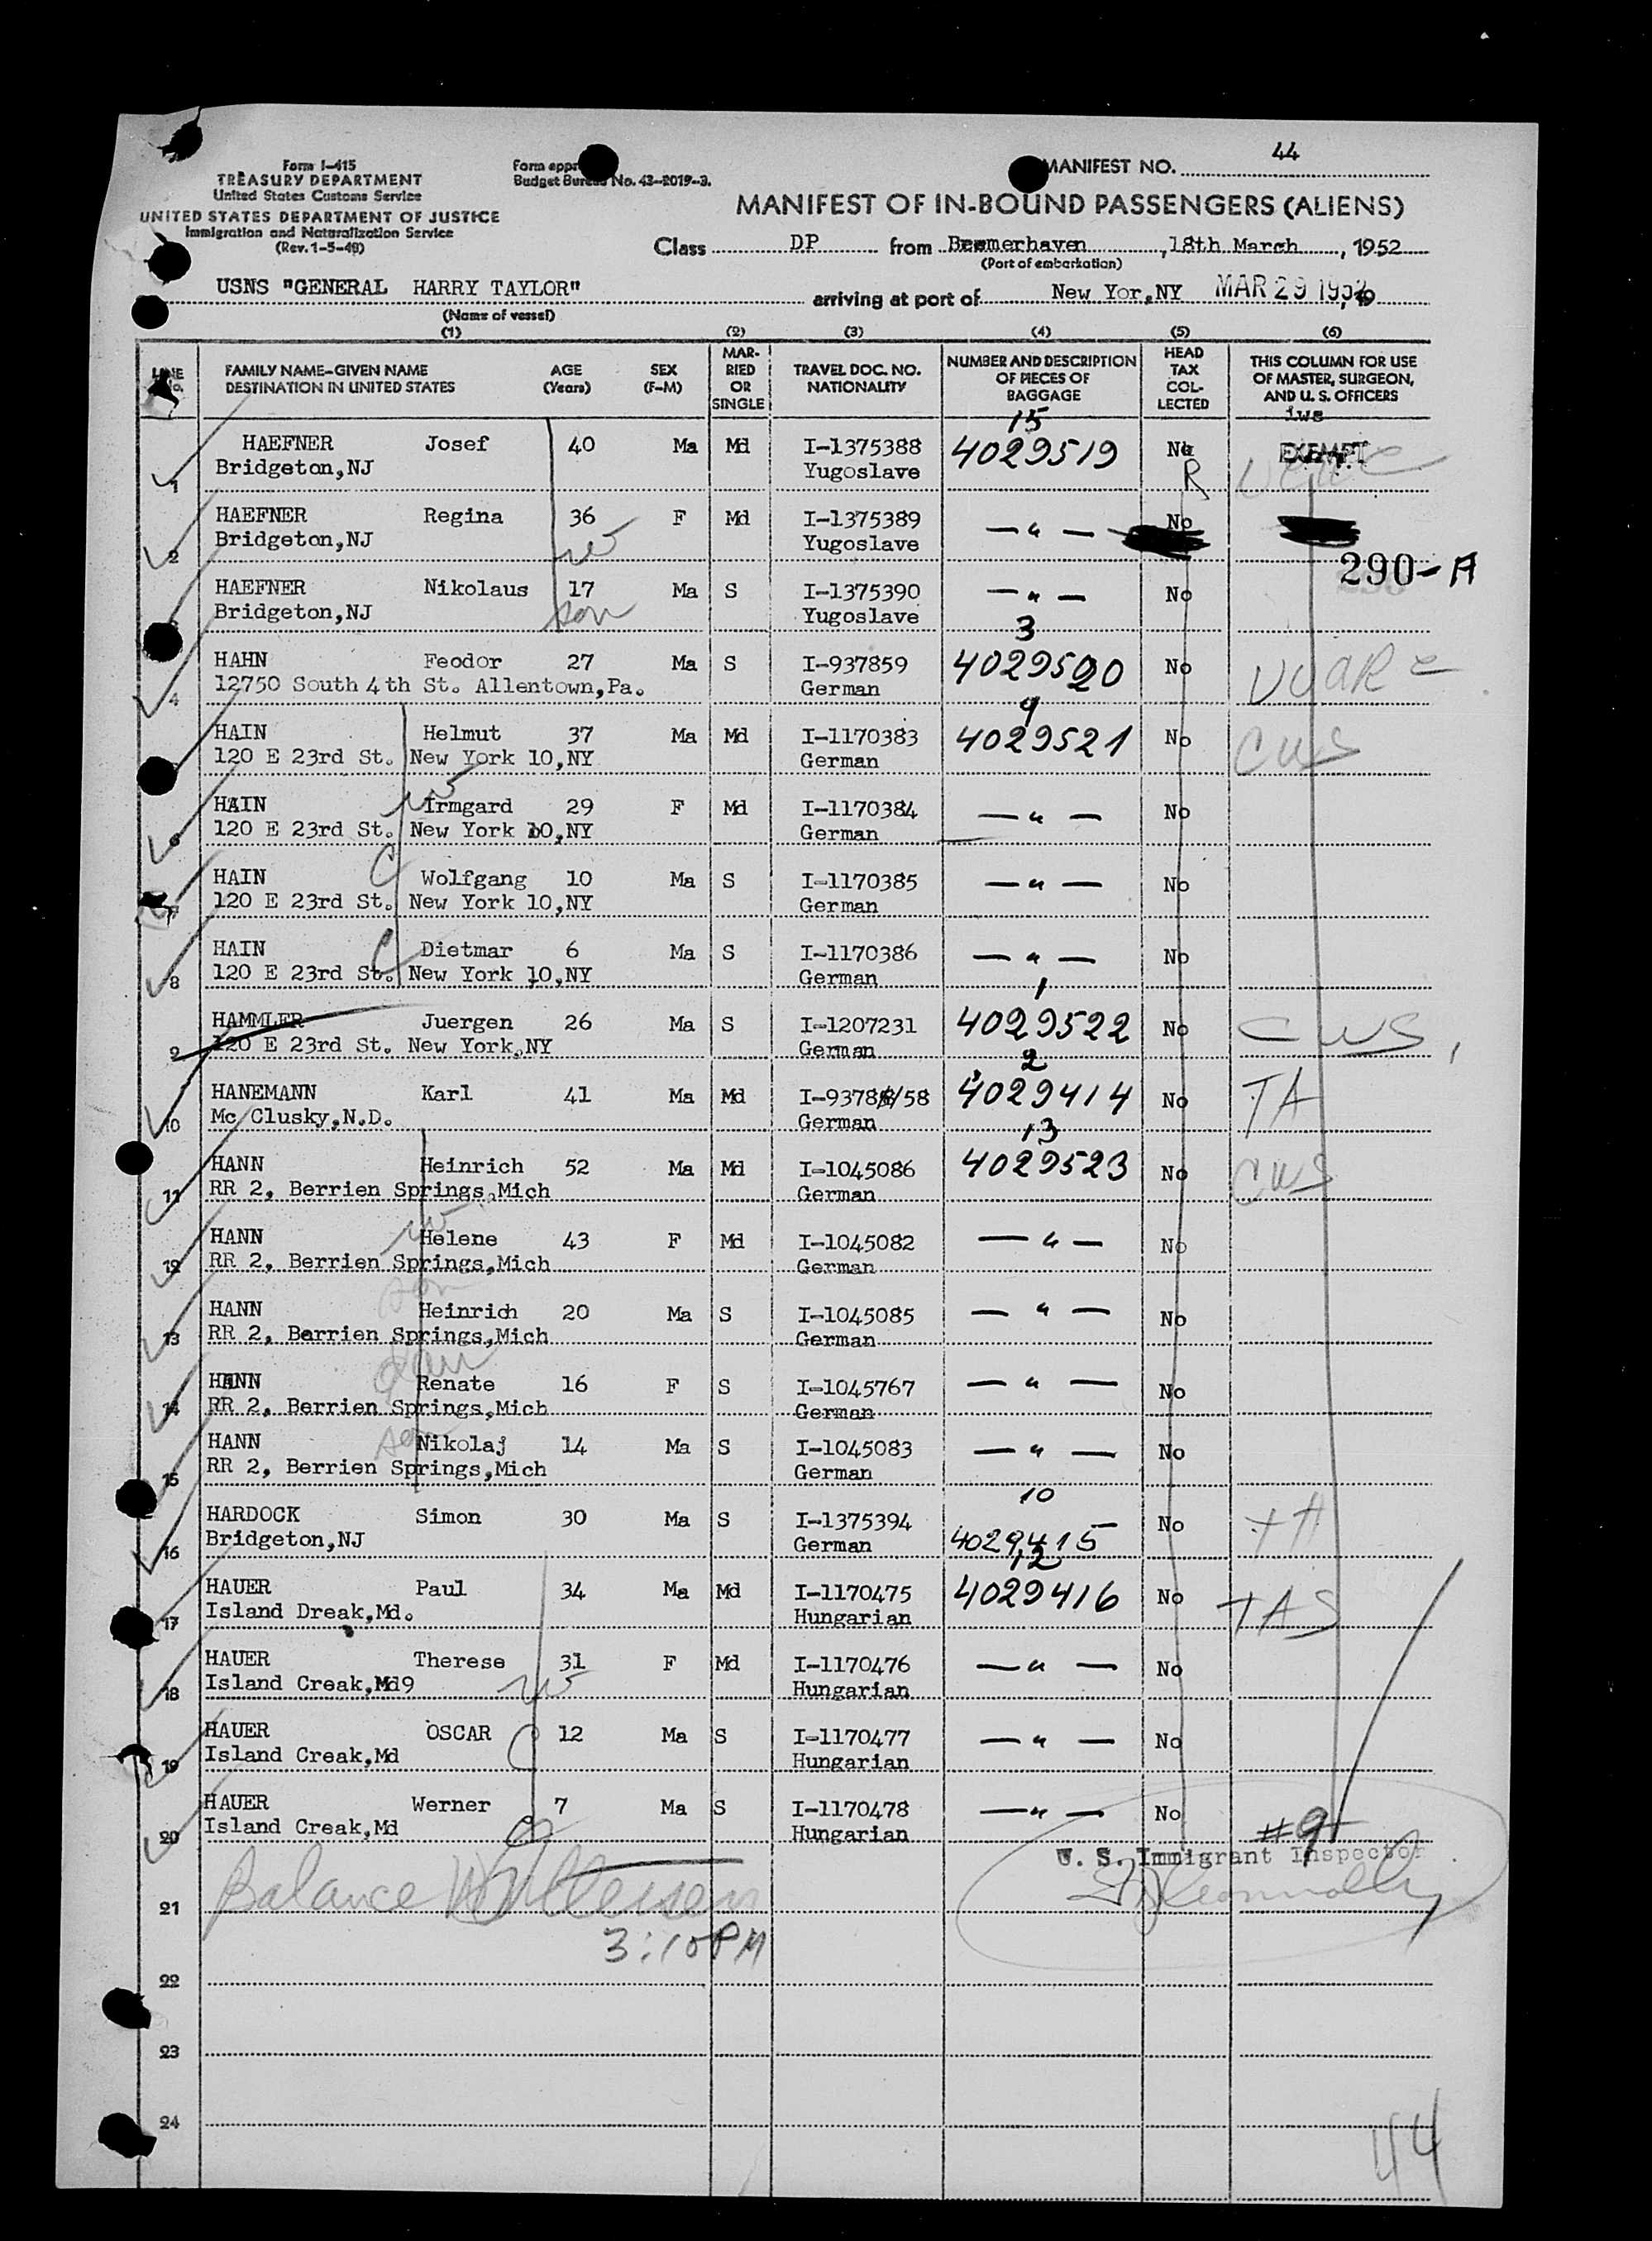 Form I-415
TREASURY DEPARTMENT
United States Customs Service
UNITED STATES DEPARTMENT OF JUSTICE
Immigration and Naturalization Service
(Rev. 1-5-49)
Form appr
Budget Bureau No. 43-R019-3.
MANIFEST NO. 44
MANIFEST OF IN-BOUND PASSENGERS (ALIENS)
Class DP from Bremerhaven, 18th March, 1952
(Port of embarkation)
USNS "GENERAL HARRY TAYLOR" arriving at port of New Yor,NY MAR 29 1952
(Name of vessel)
(1) (2) (3) (4) (5) (6)
LINE No. FAMILY NAME-GIVEN NAME DESTINATION IN UNITED STATES AGE (Years) SEX (F-M) MARRIED OR SINGLE TRAVEL DOC. NO. NATIONALITY NUMBER AND DESCRIPTION OF PIECES OF BAGGAGE HEAD TAX COLLECTED THIS COLUMN FOR USE OF MASTER, SURGEON, AND U. S. OFFICERS
15 iws
HAEFNER Josef 40 Ma Md I-1375388 4029519 No EXEMPT
1 Bridgeton,NJ Yugoslave R
HAEFNER Regina 36 F Md I-1375389 — " — No
2 Bridgeton,NJ w Yugoslave
290-A
HAEFNER Nikolaus 17 Ma S I-1375390 — " — No
Bridgeton,NJ son Yugoslave
3
HAHN Feodor 27 Ma S I-937859 4029520 No
4 12750 South 4th St. Allentown,Pa. German
9
HAIN Helmut 37 Ma Md I-1170383 4029521 No CWS
120 E 23rd St. New York 10,NY German
HAIN w Irmgard 29 F Md I-1170384 — " — No
6 120 E 23rd St. New York 10,NY German
HAIN C Wolfgang 10 Ma S I-1170385 — " — No
7 120 E 23rd St. New York 10,NY German
HAIN C Dietmar 6 Ma S I-1170386 — " — No
8 120 E 23rd St. New York 10,NY German
1
HAMMLER Juergen 26 Ma S I-1207231 4029522 No CWS
9 120 E 23rd St. New York,NY German
2
HANEMANN Karl 41 Ma Md I-9378/58 4029414 No TA
10 Mc Clusky,N.D. German
13
HANN Heinrich 52 Ma Md I-1045086 4029523 No CWS
11 RR 2, Berrien Springs,Mich German
HANN w Helene 43 F Md I-1045082 — " — No
12 RR 2, Berrien Springs,Mich German
HANN son Heinrich 20 Ma S I-1045085 — " — No
13 RR 2, Berrien Springs,Mich German
HANN dau Renate 16 F S I-1045767 — " — No
14 RR 2, Berrien Springs,Mich German
HANN son Nikolaj 14 Ma S I-1045083 — " — No
15 RR 2, Berrien Springs,Mich German
10
HARDOCK Simon 30 Ma S I-1375394 4029415 No TA
16 Bridgeton,NJ German
12
HAUER Paul 34 Ma Md I-1170475 4029416 No TAS
17 Island Dreak,Md. Hungarian
HAUER Therese 31 F Md I-1170476 — " — No
18 Island Creak,Md9 w Hungarian
HAUER OSCAR C 12 Ma S I-1170477 — " — No
19 Island Creak,Md Hungarian
HAUER Werner 7 Ma S I-1170478 — " — No
20 Island Creak,Md C Hungarian #9
U. S. Immigrant Inspector
21 Balance
3:10 PM
22
23
24
44